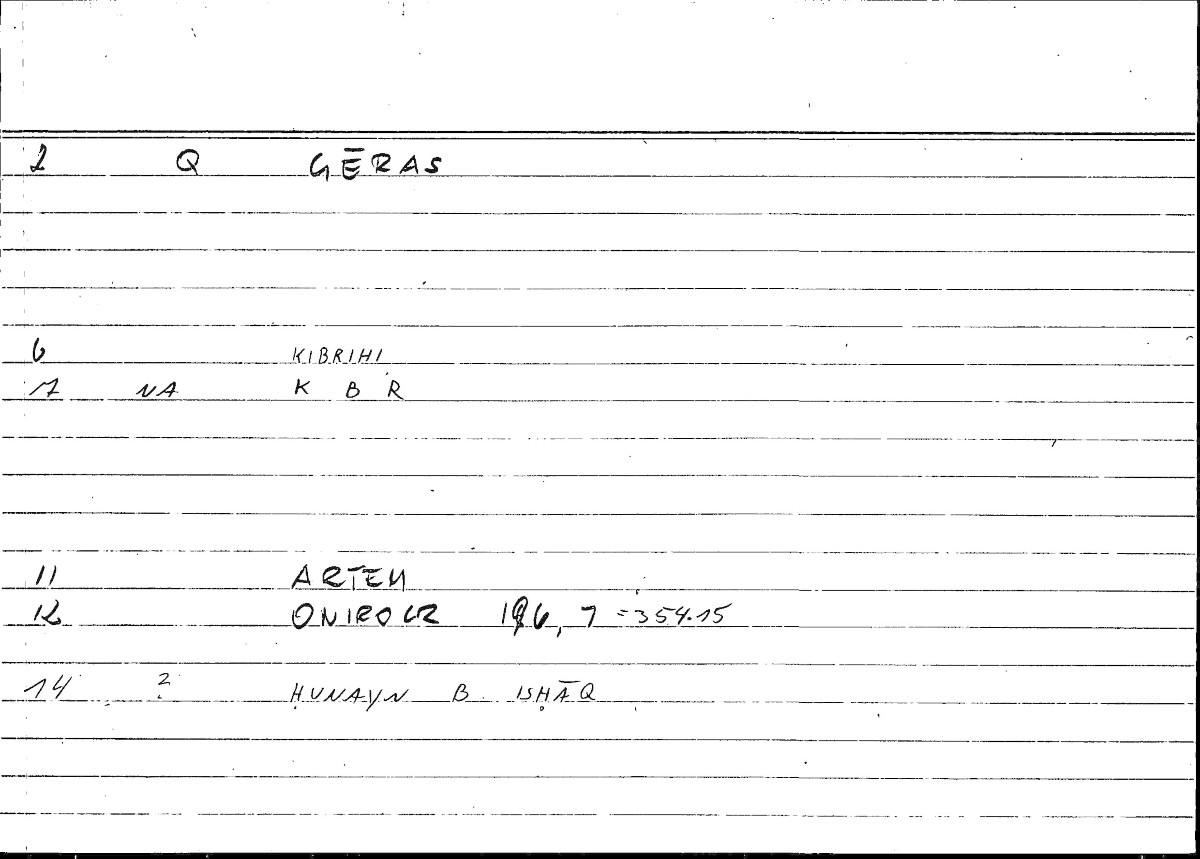 2 Q GĒRAS
6 KIBRIHI
7 NA K B R
11 ARTEM
12 ONIROCR 196, 7 =354.15
14 ? ḤUNAYN B. ISḤĀQ